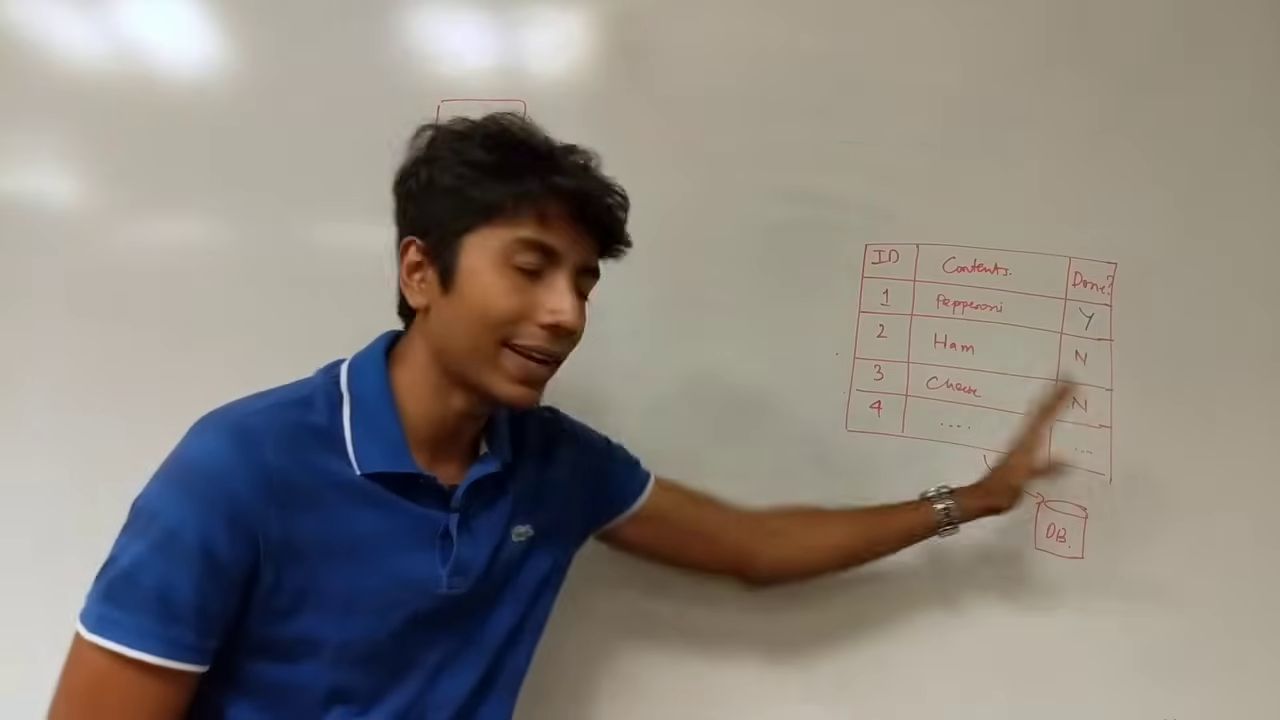 ID Contents. Done?
1 Pepperoni Y
2 Ham N
3 Cheese N
4 .... ...
DB.